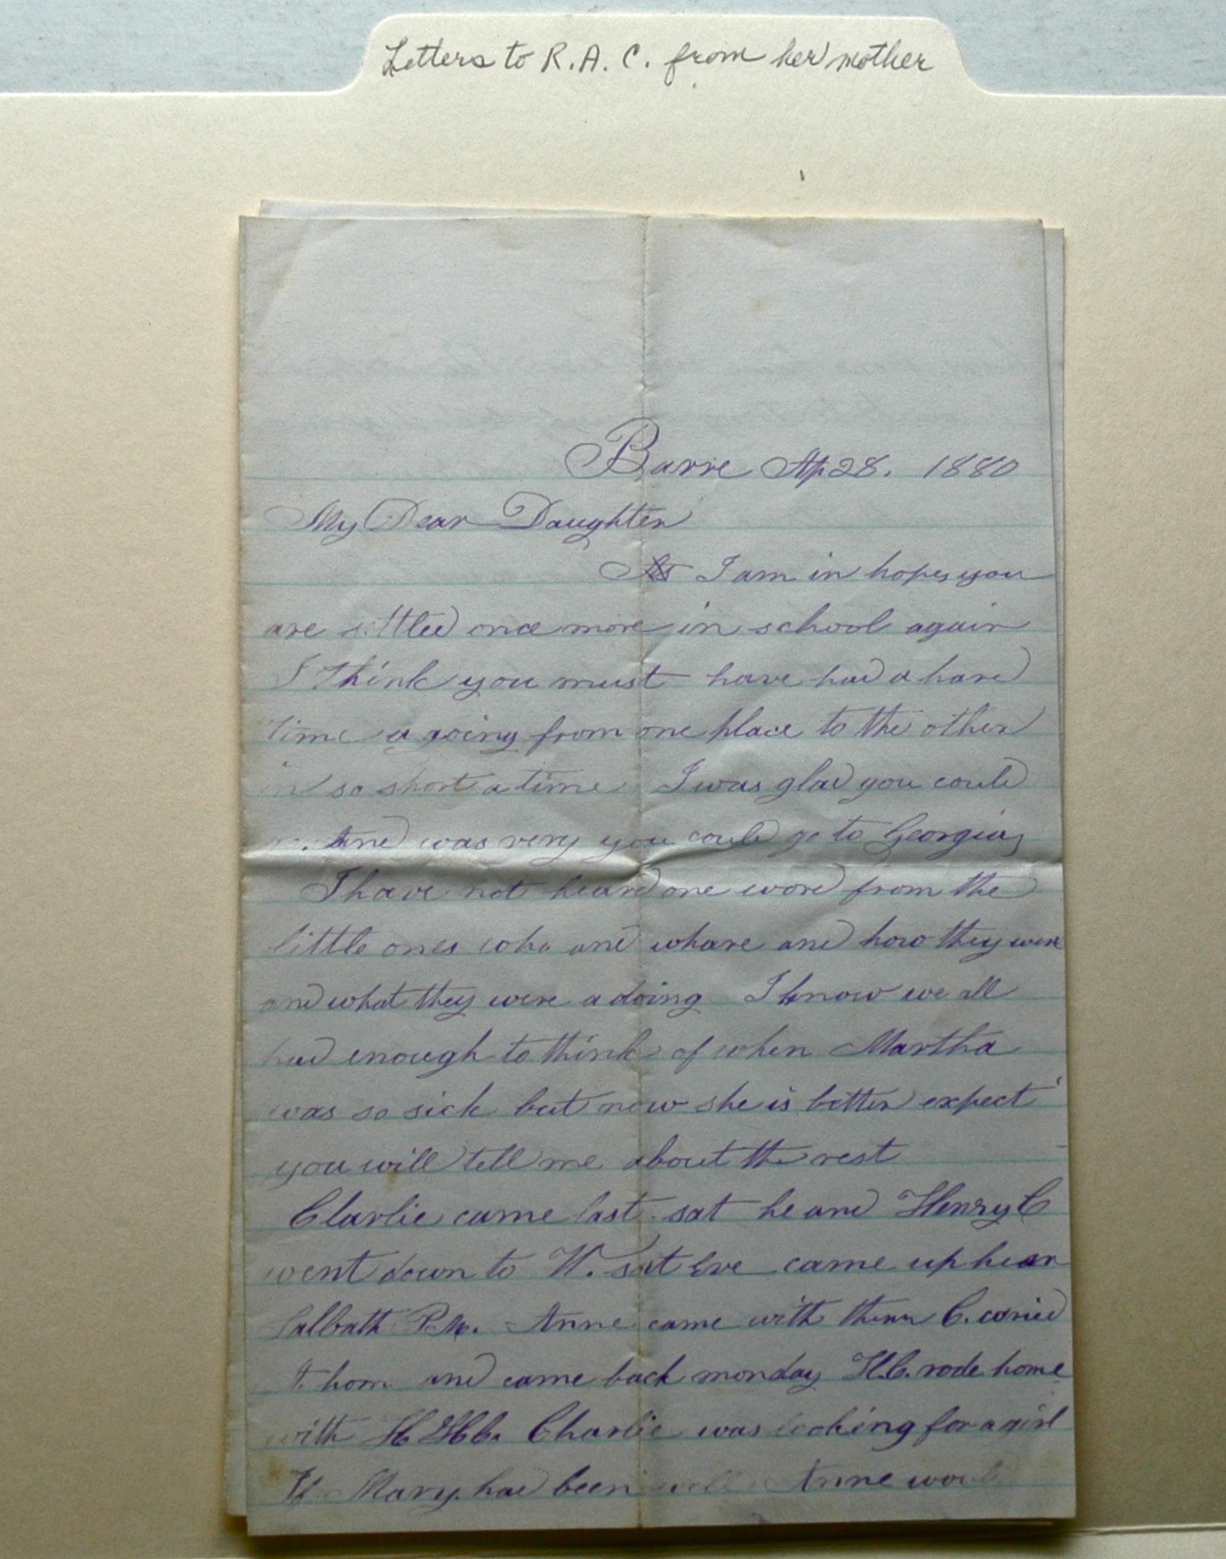 Letters to R.A.C. from her mother
Barre Ap 28. 1880
My Dear Daughter
I am in hopes you
are settled once more in school again
I think you must have had a hard
time a going from one place to the other
in so short a time I was glad you could
and was very you could go to Georgia,
I have not heard one word from the
little ones who and whare and how they were
and what they were a doing I know we all
had enough to think of when Martha
was so sick but now she is better expect
you will tell me about the rest
Clarlie came last sat he and Henry C
went down to W. sat Eve came up hear
Sabbath P.M. Anne came with them C. caried
A. hom and came back monday H.C. rode home
with Charlie was looking for a girl
If Mary had been well Anne woul